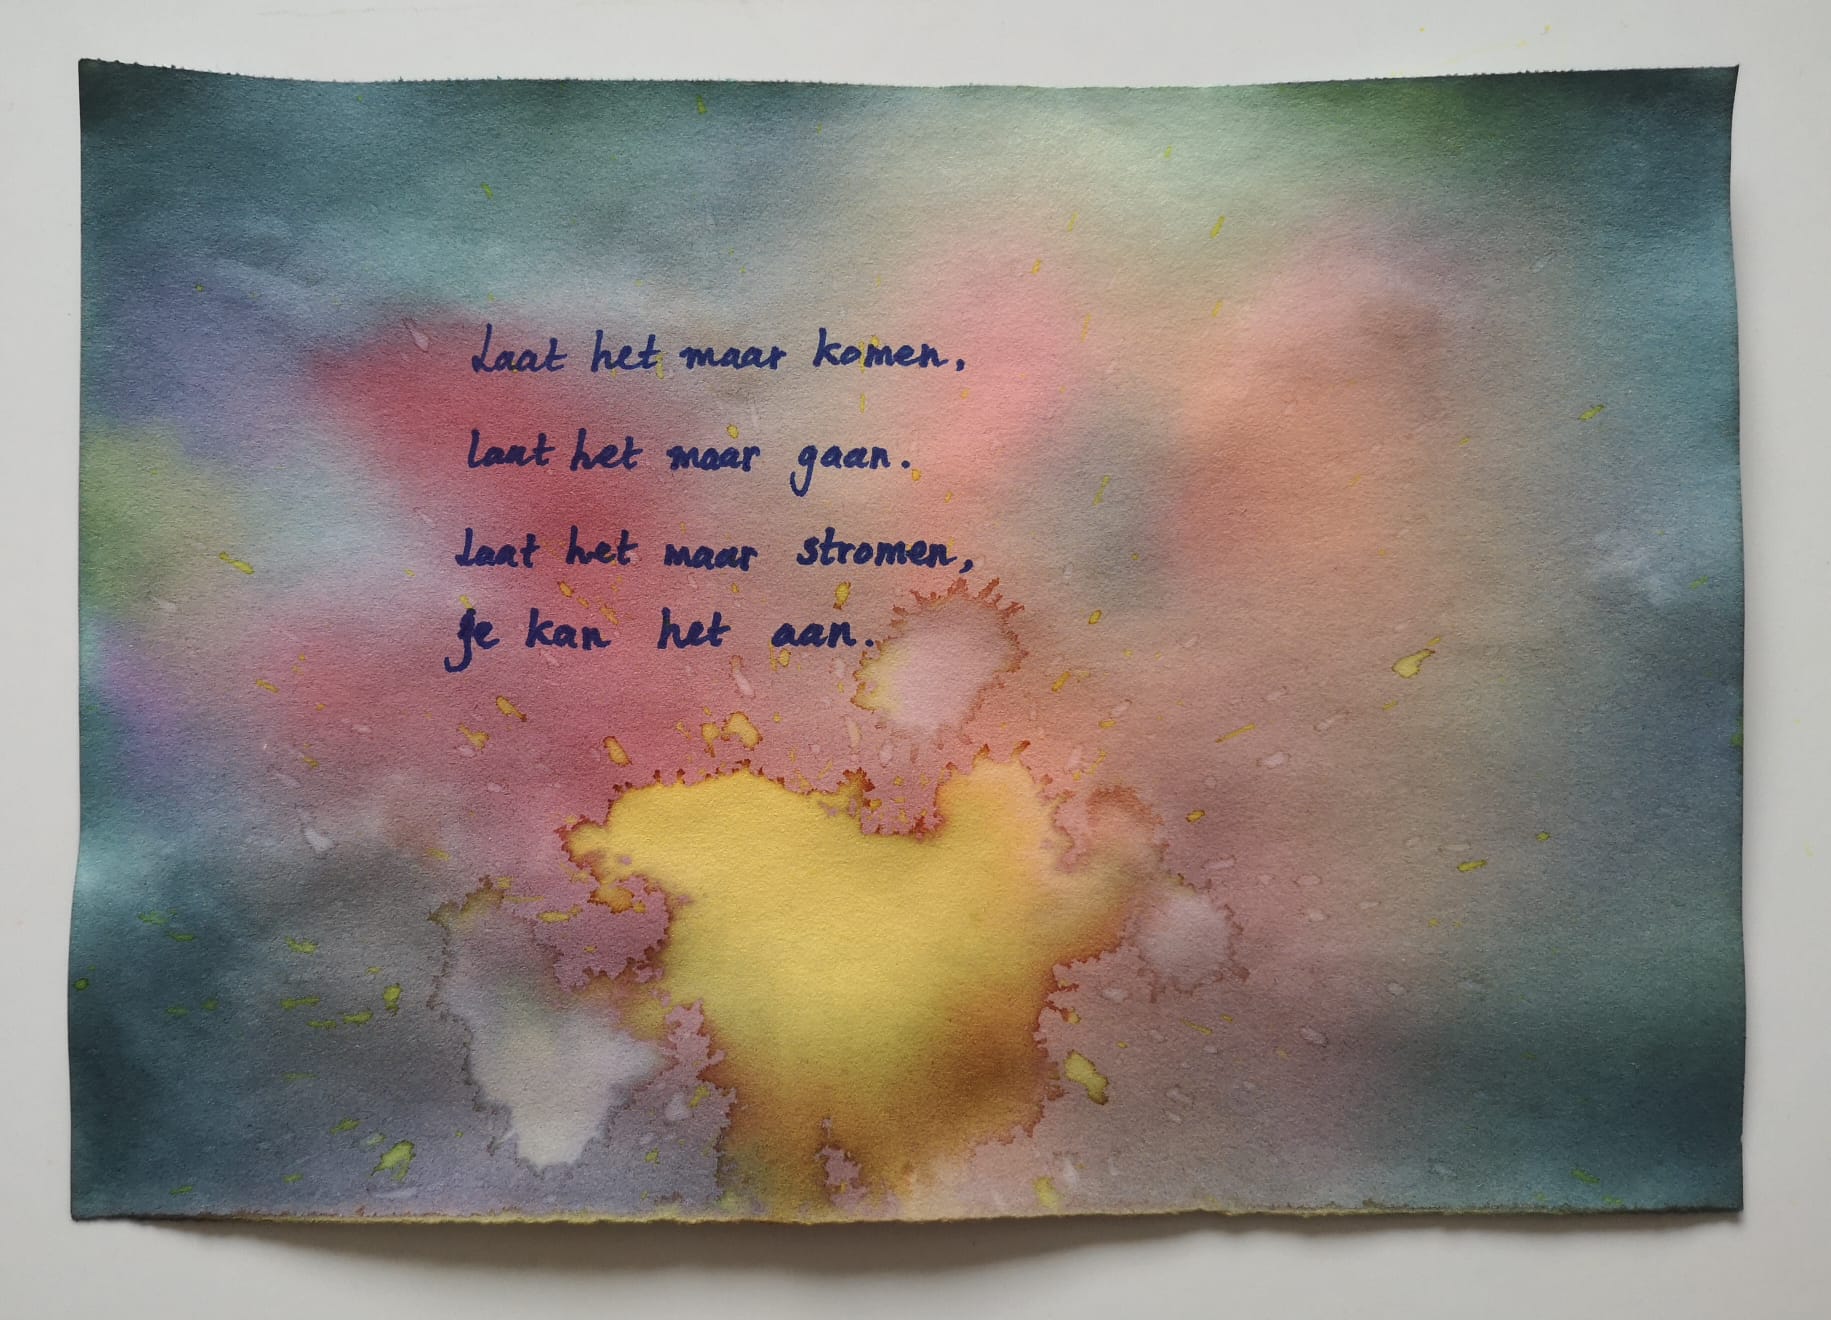 Laat het maar komen,
laat het maar gaan.
Laat het maar stromen,
Je kan het aan.